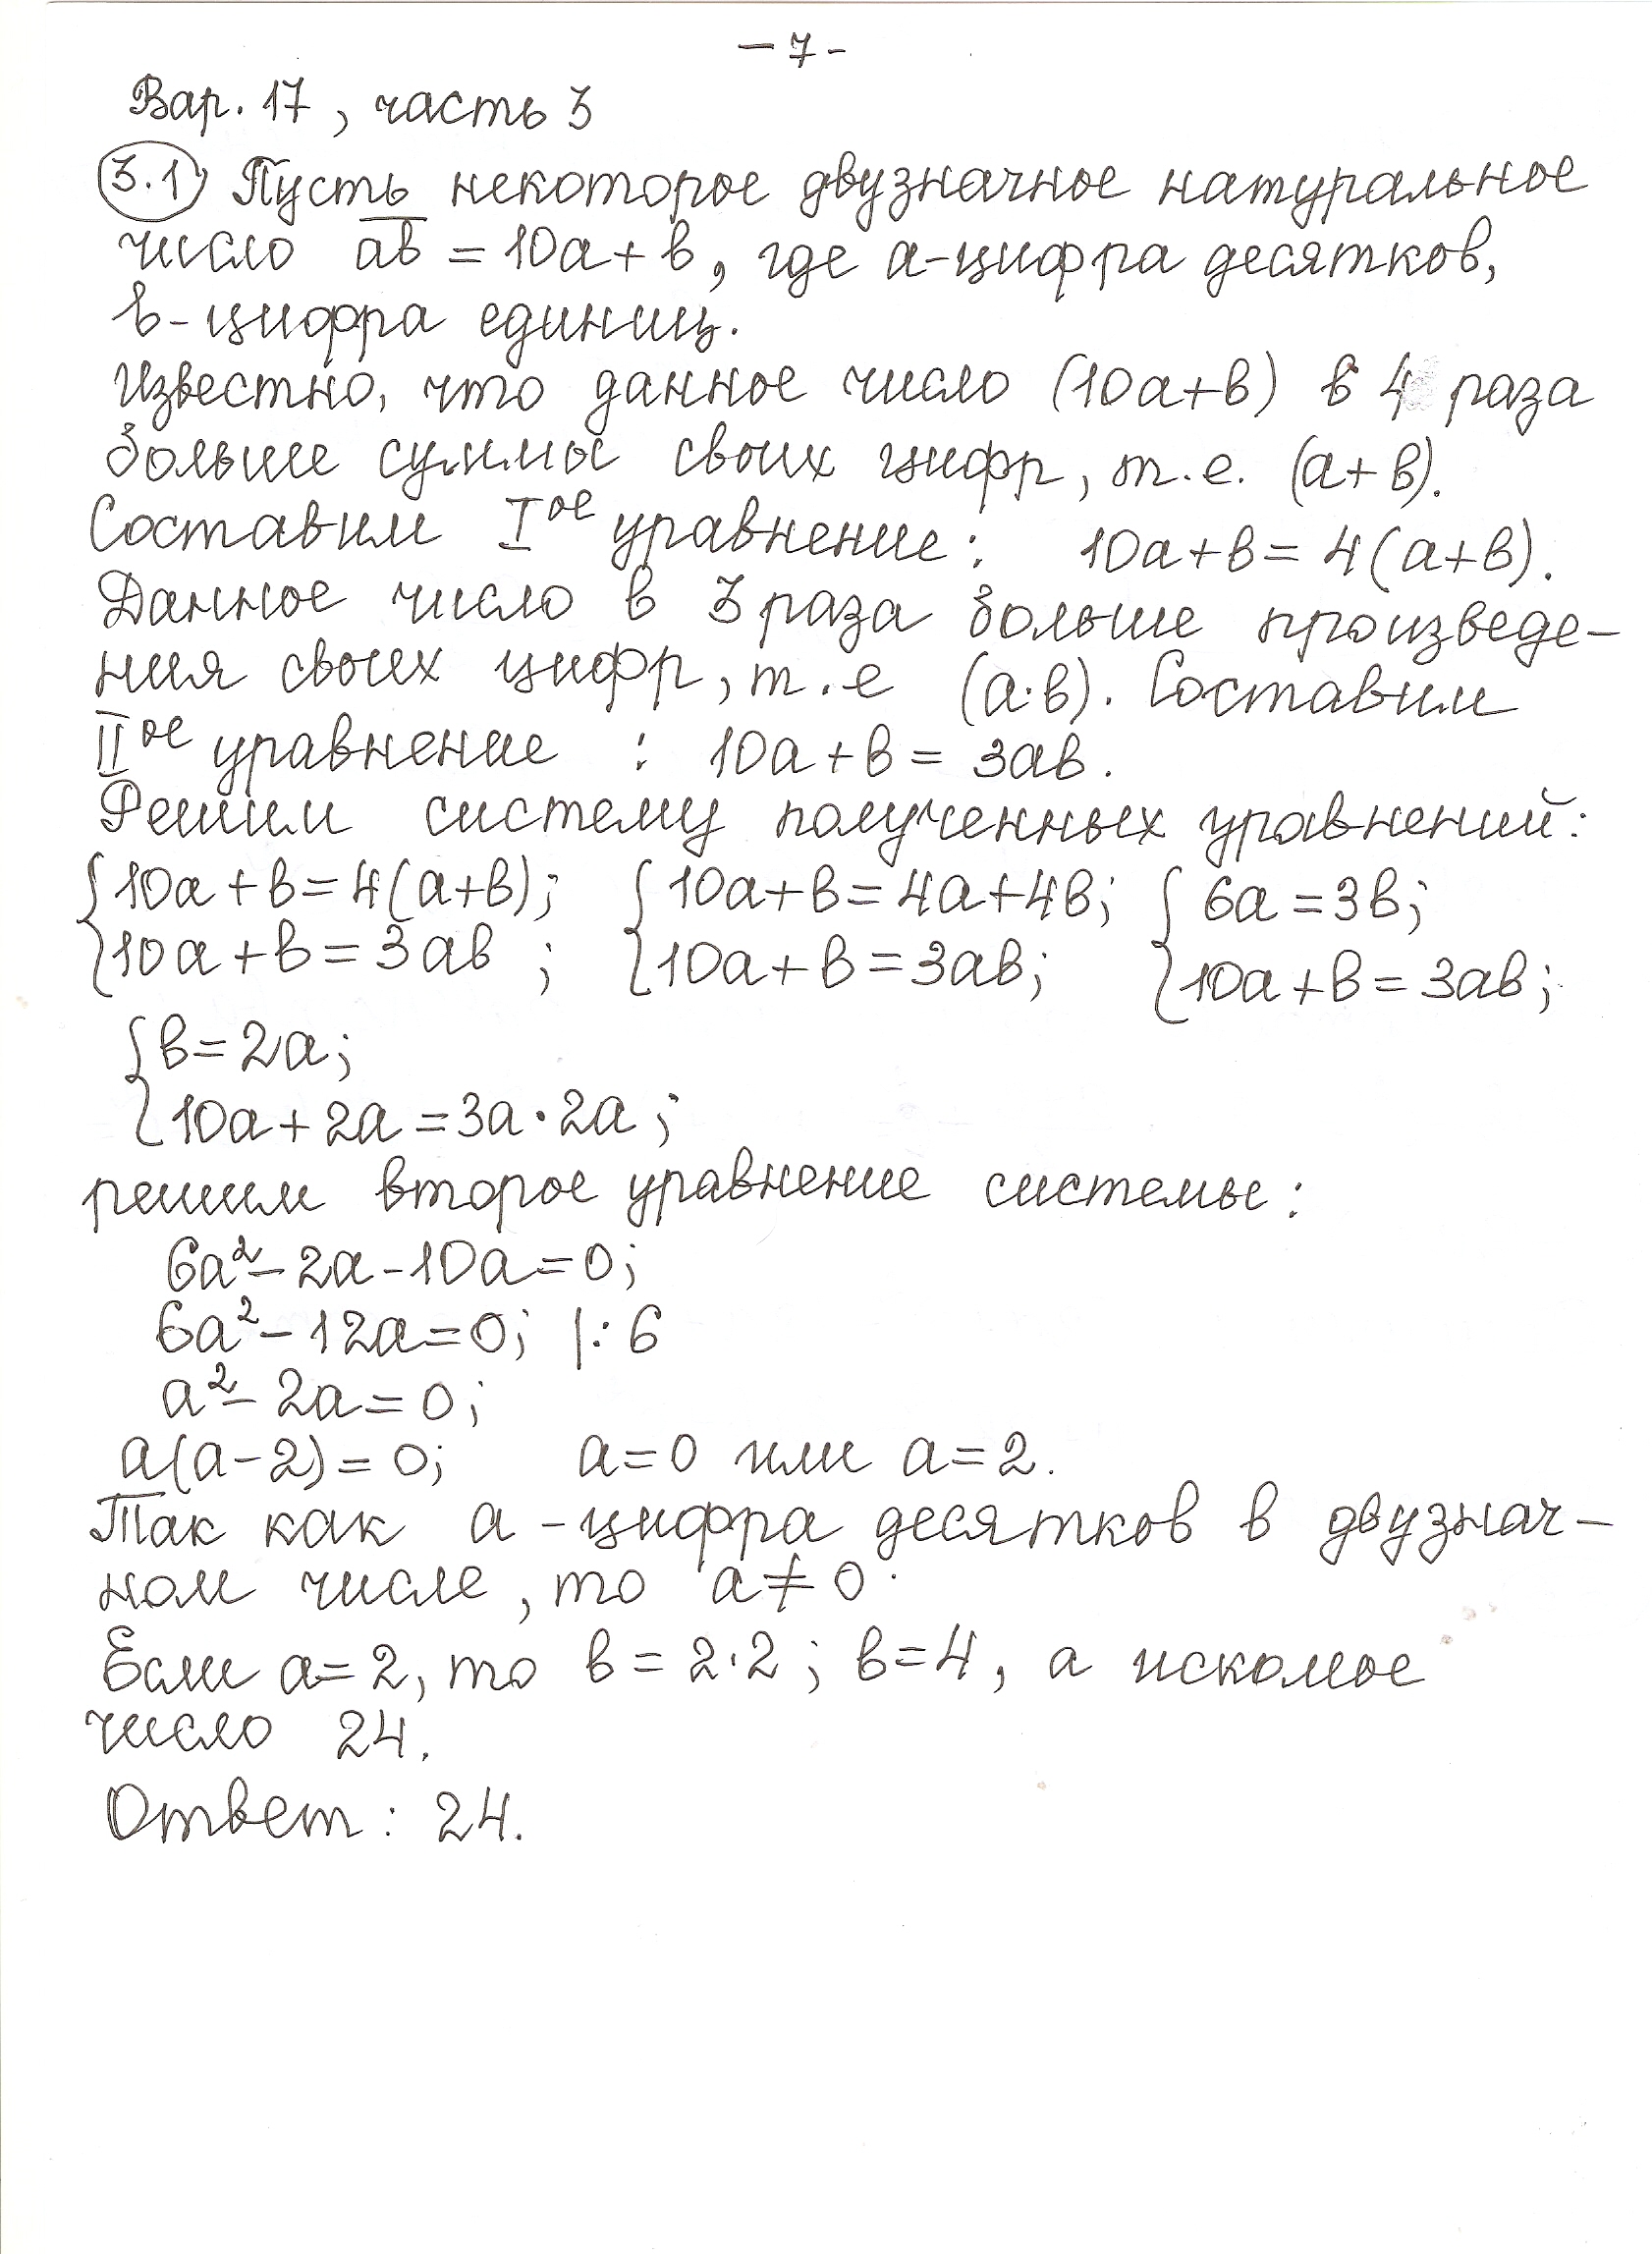 – 7 -
Вар. 17, часть 3
3.1) Пусть некоторое двузначное натуральное
число a̅b̅ = 10a+b, где a-цифра десятков,
b-цифра единиц.
Известно, что данное число (10a+b) в 4 раза
больше суммы своих цифр, т.е. (a+b).
Составим I ое уравнение: 10a+b=4(a+b).
Данное число в 3 раза больше произведе-
ния своих цифр, т.е (a·b). Составим
II ое уравнение : 10a+b=3ab.
Решим систему полученных уравнений:
{10a+b=4(a+b); {10a+b=4a+4b; {6a=3b;
{10a+b=3ab ; {10a+b=3ab; {10a+b=3ab;
{b=2a;
{10a+2a=3a·2a;
решим второе уравнение системы:
6a²-2a-10a=0;
6a²-12a=0; |:6
a²-2a=0;
a(a-2)=0; a=0 или a=2.
Так как a-цифра десятков в двузнач-
ном числе, то a≠0.
Если a=2, то b=2·2; b=4, а искомое
число 24.
Ответ: 24.